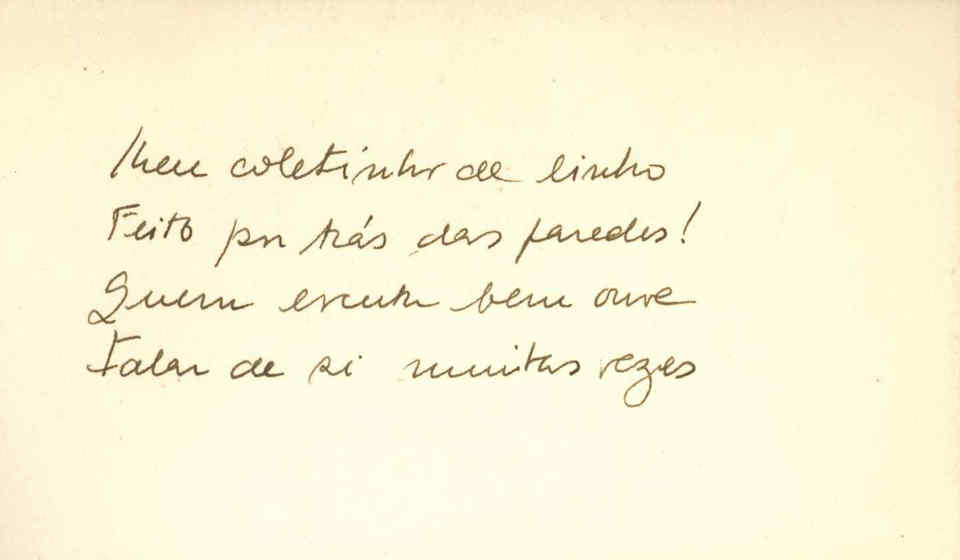 Meu coletinho de linho
Feito por trás das paredes!
Quem escuta bem ouve
Falar de si muitas vezes